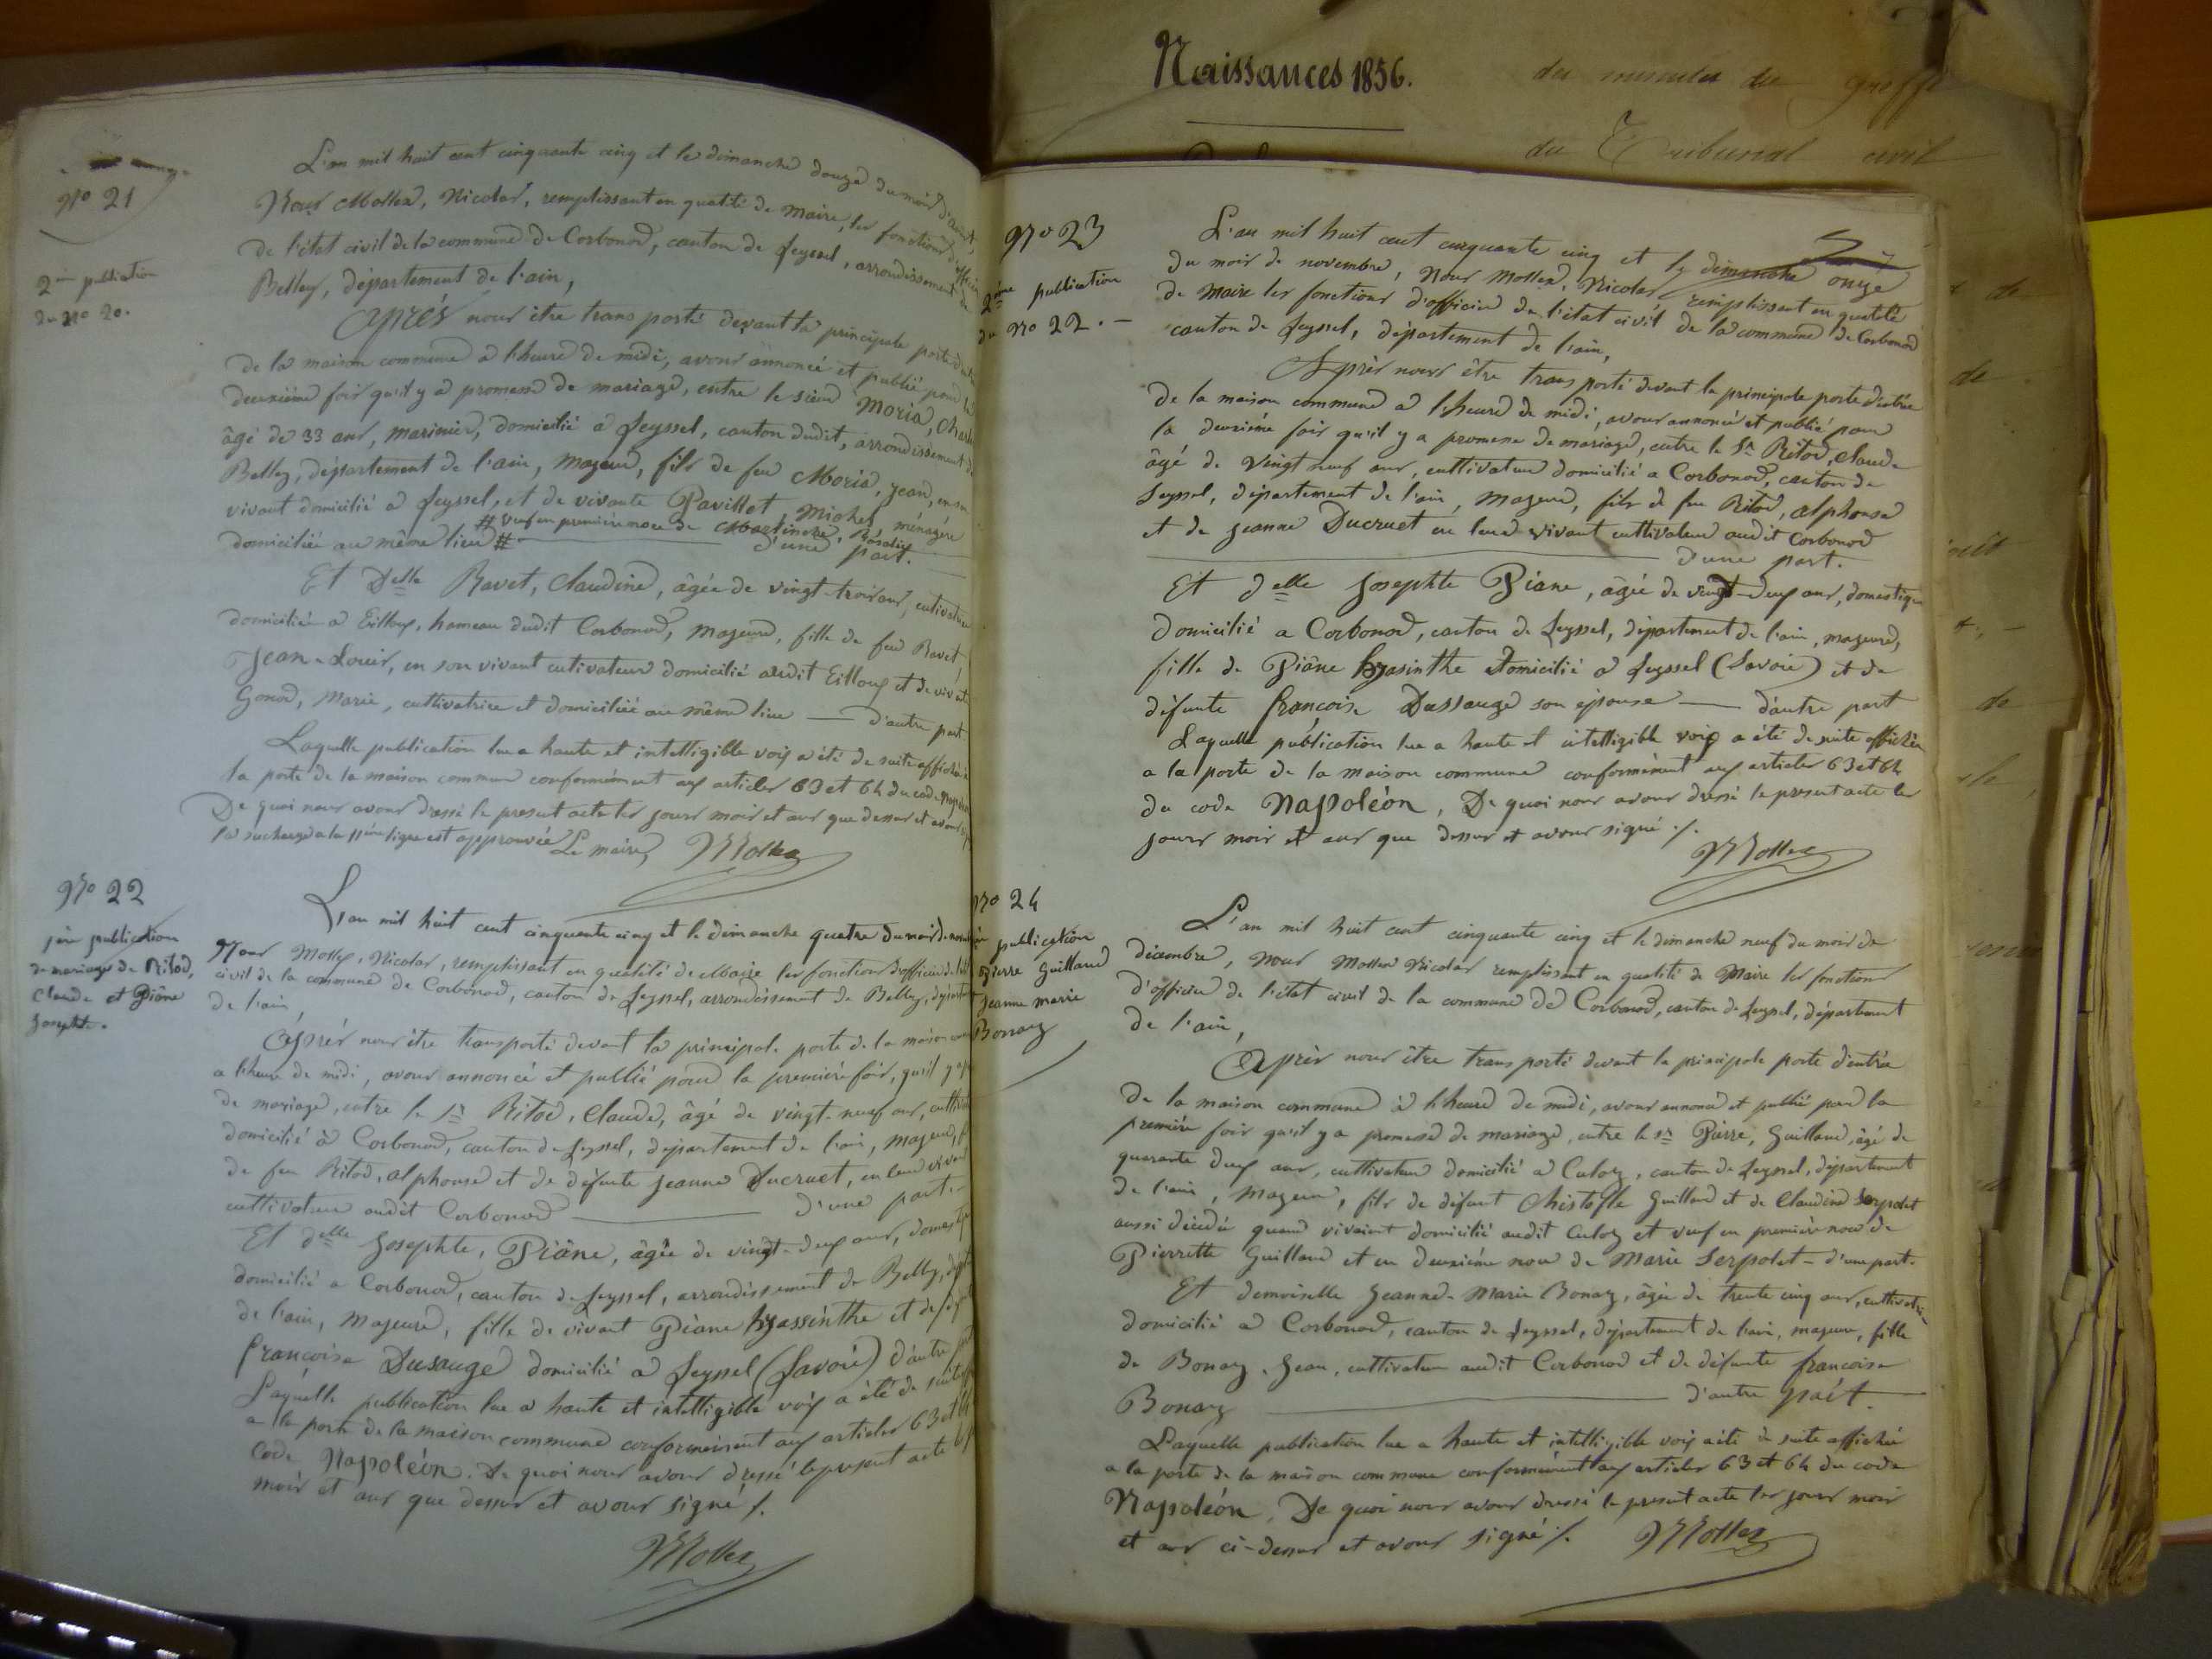 Naissances 1856.
des minutes du greffe
du Tribunal civil
No 21
2me publication
du No 20.
L'an mil huit cent cinquante cinq et le dimanche douze du mois d'août,
Nous Mollex, Nicolas, remplissant en qualité de maire, les fonctions d'officier
de l'état civil de la commune de Corbonod, canton de Seyssel, arrondissement de
Belley, département de l'ain,
Après nous être transporté devant la principale porte
de la maison commune à l'heure de midi, avons annoncé et publié pour la
deuxième fois qu'il y a promesse de mariage, entre le sieur Moria,
âgé de 33 ans, marinier, domicilié à Seyssel, canton dudit, arrondissement de
Belley, département de l'ain, majeur, fils de feu Moria, Jean, en son
vivant domicilié à Seyssel, et de vivante Pavillet, Michel, ménagère
# veuf en première noce de Martinche, Rosalie
domiciliée au même lieu # d'une part.
Et Delle Ravet, Claudine, âgée de vingt-trois ans, cultivatrice
domiciliée à Eilloux, hameau dudit Corbonod, majeure, fille de feu Ravet
Jean-Louis, en son vivant cultivateur domicilié audit Eilloux et de vivante
Gonod, Marie, cultivatrice et domiciliée au même lieu — d'autre part
Laquelle publication lue a haute et intelligible voix a été de suite affichée à
la porte de la maison commune conformément aux articles 63 et 64 du code
De quoi nous avons dressé le present acte les jours mois et ans que dessus et avons
la surcharge a la 11ème ligne est approuvée Le maire, Mollex
No 22
1ère publication
de mariage de Ritod,
Claude et Piâne
Josephte.
L'an mil huit cent cinquante cinq et le dimanche quatre du mois de
Nous Mollex, Nicolas, remplissant en qualité de Maire les fonctions d'officier de
civil de la commune de Corbonod, canton de Seyssel, arrondissement de Belley,
de l'ain,
Après nous être transporté devant la principale porte de la maison
a l'heure de midi, avons annoncé et publié pour la première fois, qu'il y a
de mariage, entre le Sr Ritod, Claude, âgé de vingt-neuf ans,
domicilié à Corbonod, canton de Seyssel, département de l'ain, majeur,
de feu Ritod, alphonse et de défunte Jeanne Ducruet, en leur vivant
cultivateur audit Corbonod — d'une part.
Et delle Josephte, Piâne, âgée de vingt-deux ans,
domicilié a Corbonod, canton de Seyssel, arrondissement de Belley,
de l'ain, majeure, fille de vivant Piane hyassinthe et de
françoise Dusauge domicilié a Seyssel (Savoie) d'autre
Laquelle publication lue a haute et intelligible voix a été de suite
a la porte de la maison commune conformément aux articles 63 et 64
Code Napoléon. De quoi nous avons dressé le present acte les
mois et ans que dessus et avons signé ./.
Mollex
No 23
2ème publication
du No 22. —
L'an mil huit cent cinquante cinq et le dimanche onze
du mois de novembre, Nous Mollex, Nicolas remplissant en qualité
de Maire les fonctions d'officier de l'état civil de la commune de Corbonod
canton de Seyssel, département de l'ain,
Après nous être transporté devant la principale porte d'entrée
de la maison commune a l'heure de midi, avons annoncé et publié pour
la deuxième fois qu'il y a promesse de mariage, entre le Sr Ritod, Claude
âgé de vingt neuf ans, cultivateur domicilié a Corbonod, canton de
Seyssel, département de l'ain, majeur, fils de feu Ritod, alphonse
et de Jeanne Ducruet en leur vivant cultivateur audit Corbonod
— d'une part.
Et delle Josephte Piane, âgée de vingt-deux ans, domestique
domicilié a Corbonod, canton de Seyssel, département de l'ain, majeure,
fille de Piâne hyasinthe domicilié a Seyssel (Savoie) et de
défunte françoise Dussauge son épouse — d'autre part
Laquelle publication lue a haute et intelligible voix a été de suite affichée
a la porte de la maison commune conformément aux articles 63 et 64
du code Napoléon, De quoi nous avons dressé le present acte les
jours mois et ans que dessus et avons signé ./.
Mollex
No 24
publication
Pierre Guilland
Jeanne marie
Bonaz
L'an mil huit cent cinquante cinq et le dimanche neuf du mois de
décembre, nous Mollex Nicolas remplissant en qualité de Maire les fonction
d'officier de l'état civil de la commune de Corbonod, canton de Seyssel, département
de l'ain,
Après nous être transporté devant la principale porte d'entrée
de la maison commune à l'heure de midi, avons annoncé et publié pour la
première fois qu'il y a promesse de mariage, entre le sr Pierre, Guilland, âgé de
quarante deux ans, cultivateur domicilié a Culoz, canton de Seyssel, département
de l'ain, majeur, fils de défunt Christofle Guilland et de Claudine Serpolet
aussi décédée quand vivaient domicilié audit Culoz et veuf en première noce de
Pierrette Guilland et en deuxième noce de Marie Serpolet — d'une part.
Et demoiselle Jeanne-Marie Bonaz, âgée de trente cinq ans, cultivatrice
domicilié a Corbonod, canton de Seyssel, département de l'ain, majeure, fille
de Bonaz, Jean, cultivateur audit Corbonod et de défunte francoise
Bonaz — d'autre part.
Laquelle publication lue a haute et intelligible voix a été de suite affichée
a la porte de la maison commune conformément aux articles 63 et 64 du code
Napoléon. De quoi nous avons dressé le present acte les jours mois
et ans ci-dessus et avons signé ./. Mollex